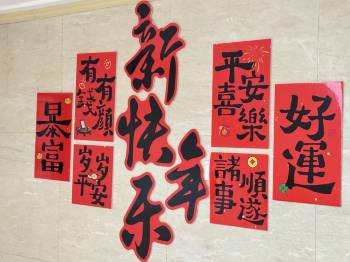 暴富
有錢
有顏
岁岁
平安
新年快乐
平安
喜樂
諸事
順遂
好運